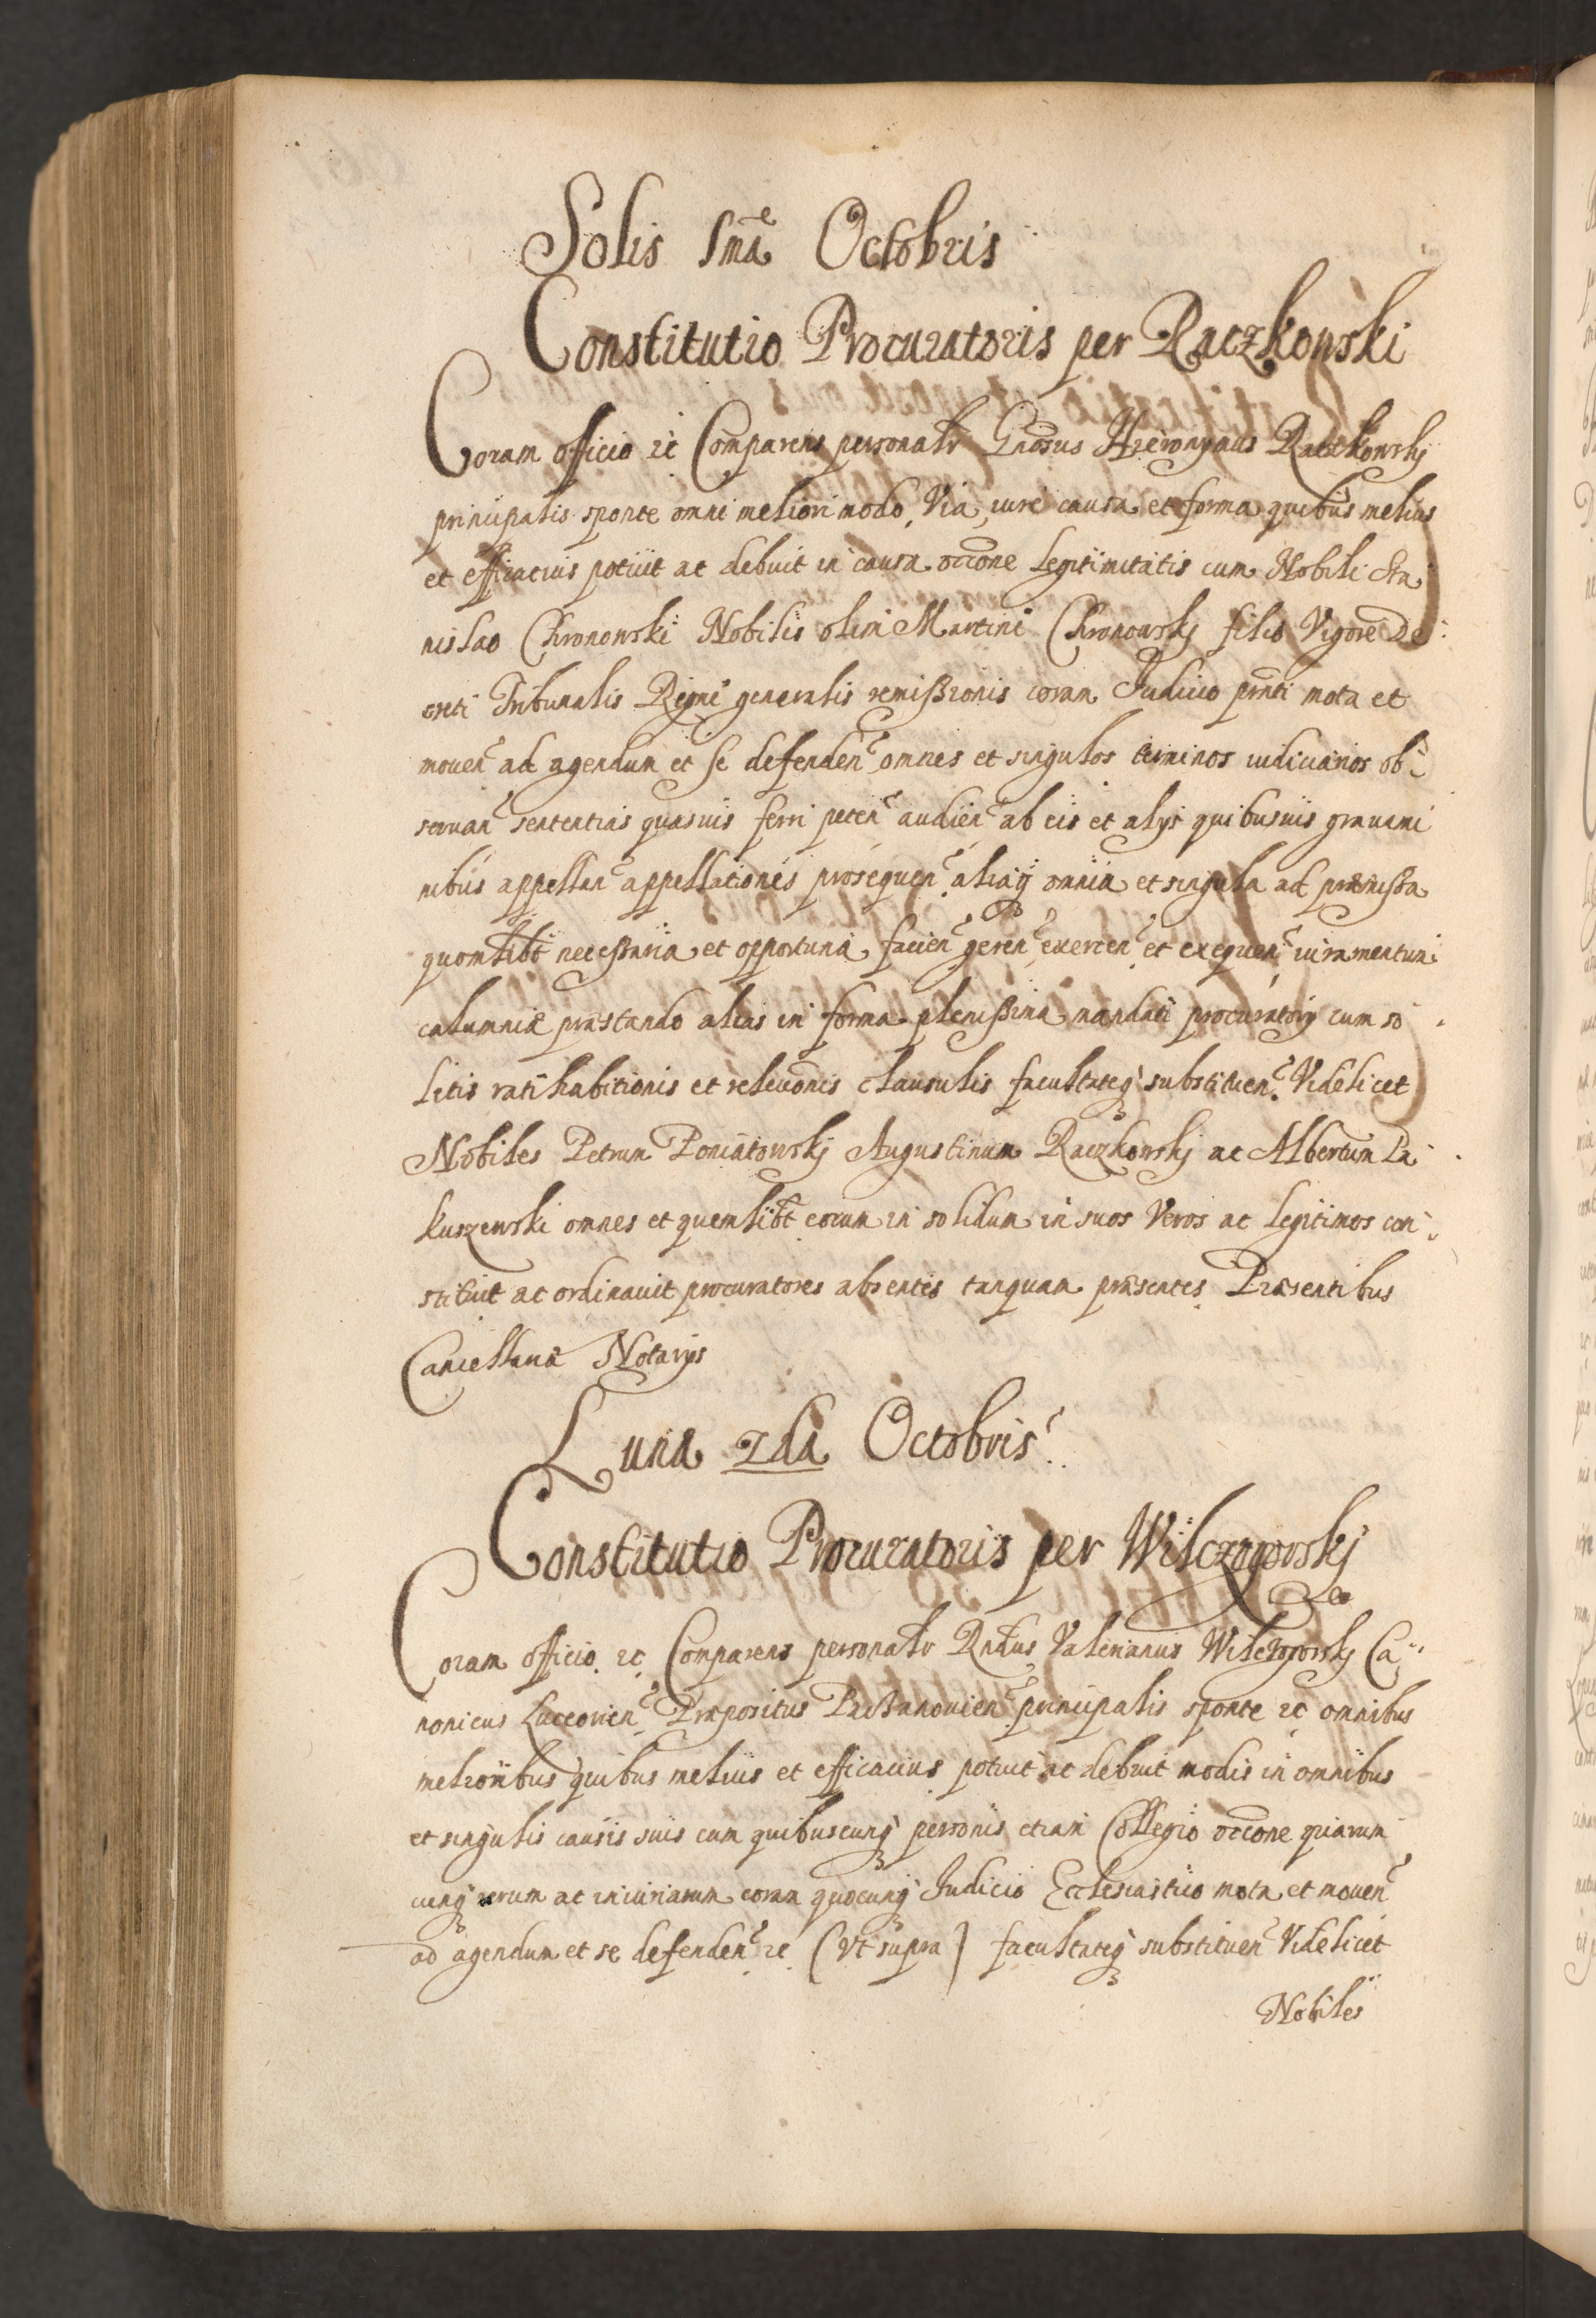 Solis 1mã Octobris
Constitutio Procuratoris per Raczkowski
Coram officio &c Comparens personalr Gnosus Hieronymus Raczkowskj
principalis sponte omni meliori modo, Via, iure causa et forma quibus melius
et efficacius potuit ac debuit in causa occõne Legitimitatis cum Nobili Sta
nislao Chronowski Nobilis olim Martini Chronowskj filio Vigore De
creti Tribunalis Regni generalis remißionis coram Judicio pñti mota et
mouen̄ ad agendum et se defenden̄ omnes et singulos terminos iudiciarios ob
seruan̄ sententias quasuis ferri peten̄ audien̄ ab eis et alijs quibusuis grauami
nibus appellan̄ appellationes prosequen̄ aliaq omnia et singula ad præmißa
quomlibt neceßaria et opportuna facien̄ geren̄ exercen̄ et exequen̄ iuramentum
calumniæ præstando alias in forma plenißima mandati procuratorij cum so
litis ratihabitionis et releuõnis clausulis facultateq substituen̄ Videlicet
Nobiles Petrum Poniatowskj Augustinum Raczkowskj ac Albertum Pa
kuszewski omnes et quemlibt eorum in solidum in suos Veros ac Legitimos con
stituit ac ordinauit procuratores absentes tanquam præsentes Præsentibus
Cancellariæ Notarijs
Lunæ 2da Octobris
Constitutio Procuratoris per Wilczogorskj
Coram officio &c Comparens personalr Rndus Valerianus Wilczogorskj Ca
nonicus Luceorien̄ Præpositus principalis sponte &c omnibus
melioribus quibus melius et efficacius potuit ac debuit modis in omnibus
et singulis causis suis cum quibuscunq personis etiam Collegio occõne quarum
cunq rerum ac iniuriarum coram quocunq Judicio Ecclesiastico mota et mouen̄
ad agendum et se defenden̄ &c (Vt supra) facultateq substituen̄ Videlicet
Nobiles